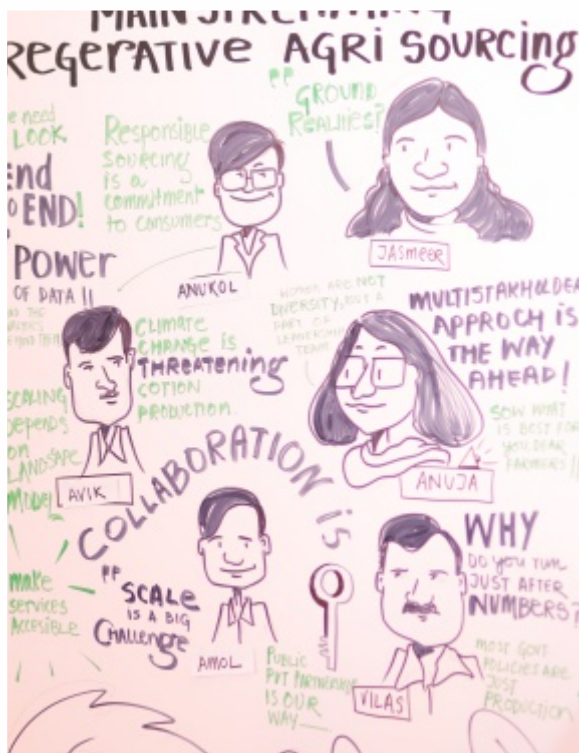 MAINSTREAMING
REGERATIVE AGRI SOURCING
need
LOOK
End
TO END!
Responsible
Sourcing
is a
commitment
to consumers
ANUKOL
" GROUND
REALITIES?
JASMEER
POWER
OF DATA !!
CLIMATE
CHANGE IS
THREATENING
COTION
PRODUCTION
AVIK
WOMEN ARE NOT
DIVERSITY, BUT A
PART OF
LEADERSHIP
TEAM
MULTISTAKHOLDER
APPROCH IS
THE WAY
AHEAD!
SOW WHAT
IS BEST FOR
YOU DEAR
FARMERS !!
ANUJA
SCALING
Depends
on
LANDSAPE
MODEL
make
services
Accesible
COLLABORATION is
" SCALE
IS A BIG
Challenge
AMOL
PUBLIC
PVT PARTNERSHIP
IS OUR
WAY
WHY
DO YOU TURN
JUST AFTER
NUMBERS?
VILAS
MOST GOVT
POLICIES ARE
JUST
PRODUCTION